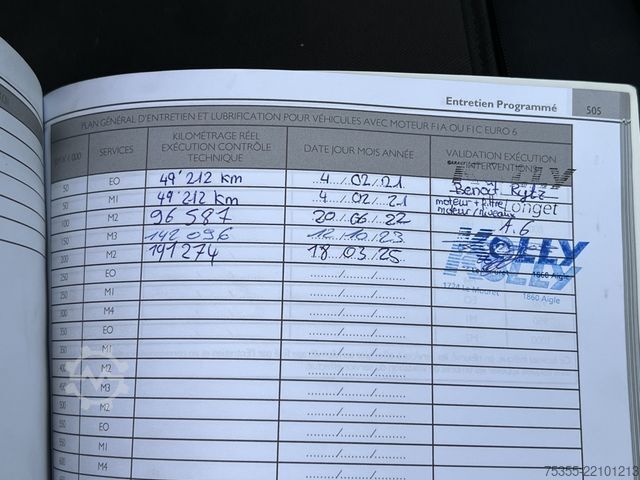 Entretien Programmé 505
PLAN GÉNÉRAL D'ENTRETIEN ET LUBRIFICATION POUR VÉHICULES AVEC MOTEUR F1A OU F1C EURO 6
SERVICES KILOMÉTRAGE RÉEL EXÉCUTION CONTRÔLE TECHNIQUE DATE JOUR MOIS ANNÉE VALIDATION EXÉCUTION INTERVENTIONS
50 EO 49'212 km 4../.02./.21. Benoît Rytz
50 M1 49'212 km 4../.02./.21 moteur + filtre Longet
100 M2 96 587 20./.06./.22 moteur / niveaux A.6
150 M3 142 096 12./.10./.23. KOLLY
200 M2 191 274 18./.03./.25. KOLLY 1860 Aigle
250 EO ....../....../......
250 M1 ....../....../...... 1724 Le Mouret 1860 Aigle
300 M4 ....../....../......
350 EO ....../....../......
350 M1 ....../....../......
400 M2 ....../....../......
450 M3 ....../....../......
500 M2 ....../....../......
550 EO ....../....../......
550 M1 ....../....../......
600 M4 ....../....../......
75355-22101213